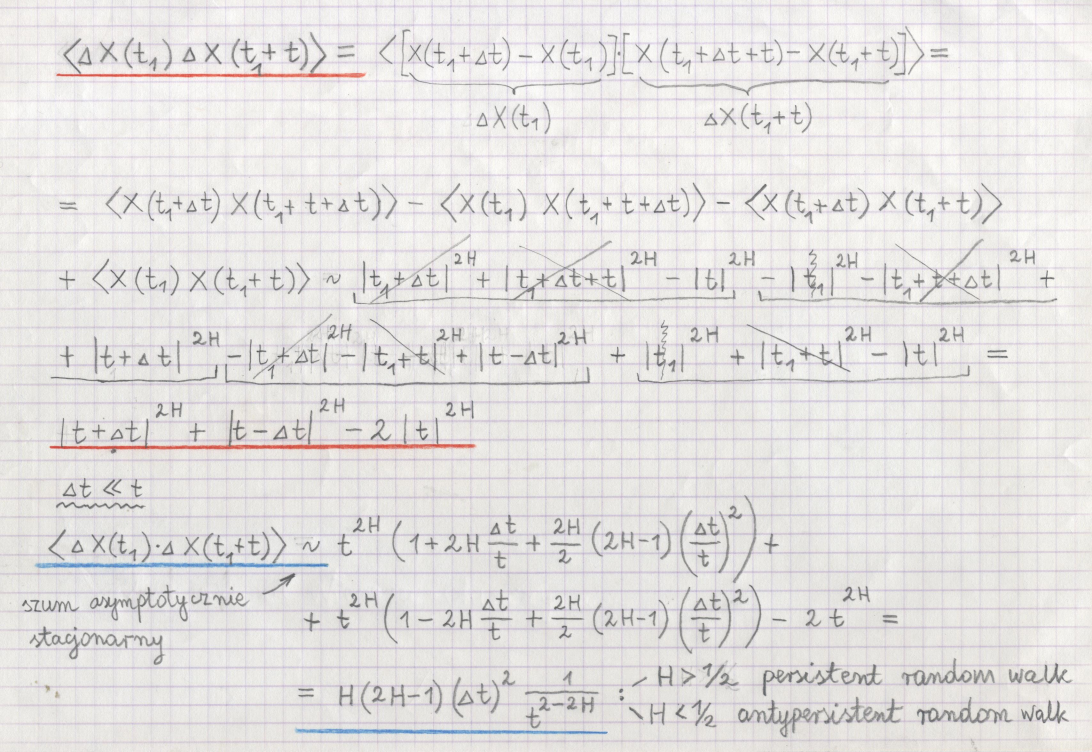 ⟨ΔX(t₁) ΔX(t₁+t)⟩ = ⟨[X(t₁+Δt) − X(t₁)]·[X(t₁+Δt+t) − X(t₁+t)]⟩ =
ΔX(t₁) ΔX(t₁+t)
= ⟨X(t₁+Δt) X(t₁+t+Δt)⟩ − ⟨X(t₁) X(t₁+t+Δt)⟩ − ⟨X(t₁+Δt) X(t₁+t)⟩
+ ⟨X(t₁) X(t₁+t)⟩ ~ |t₁+Δt|^2H + |t₁+Δt+t|^2H − |t|^2H − |t₁|^2H − |t₁+t+Δt|^2H +
+ |t+Δt|^2H − |t₁+Δt|^2H − |t₁+t|^2H + |t−Δt|^2H + |t₁|^2H + |t₁+t|^2H − |t|^2H =
|t+Δt|^2H + |t−Δt|^2H − 2 |t|^2H
Δt ≪ t
⟨ΔX(t₁)·ΔX(t₁+t)⟩ ~ t^2H (1 + 2H Δt/t + 2H/2 (2H−1) (Δt/t)²) +
szum asymptotycznie
stacjonarny
+ t^2H (1 − 2H Δt/t + 2H/2 (2H−1) (Δt/t)²) − 2 t^2H =
= H(2H−1) (Δt)² 1/t^(2−2H) : H > 1/2 persistent random walk
H < 1/2 antypersistent random walk